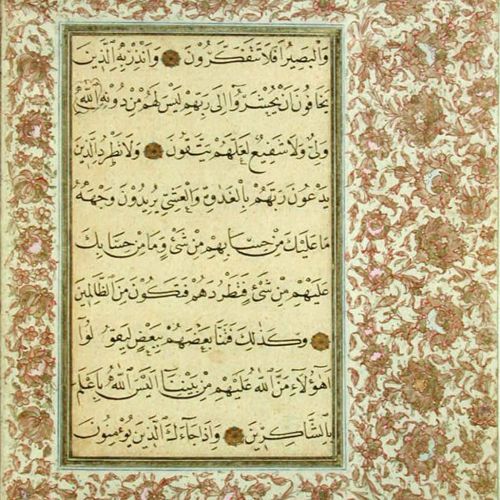 وَالْبَصِيرُ اَفَلَا تَتَفَكَّرُونَ وَاَنْذِرْ بِهِ الَّذِينَ
يَخَافُونَ اَنْ يُحْشَرُٓوا اِلٰى رَبِّهِمْ لَيْسَ لَهُمْ مِنْ دُونِهِ
وَلِىٌّ وَلَا شَفِيعٌ لَعَلَّهُمْ يَتَّقُونَ وَلَا تَطْرُدِ الَّذِينَ
يَدْعُونَ رَبَّهُمْ بِالْغَدٰوةِ وَالْعَشِىِّ يُرِيدُونَ وَجْهَهُ
مَا عَلَيْكَ مِنْ حِسَابِهِمْ مِنْ شَىْءٍ وَمَا مِنْ حِسَابِكَ
عَلَيْهِمْ مِنْ شَىْءٍ فَتَطْرُدَهُمْ فَتَكُونَ مِنَ الظَّالِمِينَ
وَكَذٰلِكَ فَتَنَّا بَعْضَهُمْ بِبَعْضٍ لِيَقُولُٓوا
اَهٰٓؤُلَٓاءِ مَنَّ اللّٰهُ عَلَيْهِمْ مِنْ بَيْنِنَا اَلَيْسَ اللّٰهُ بِاَعْلَمَ
بِالشَّاكِرِينَ وَاِذَا جَٓاءَكَ الَّذِينَ يُؤْمِنُونَ